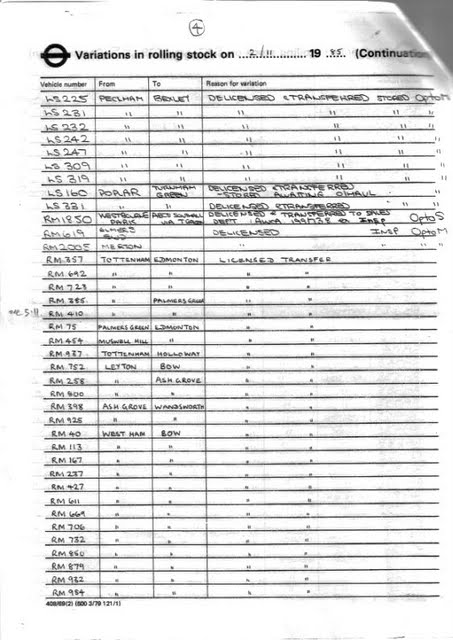 4
Variations in rolling stock on 2/11 19 85 (Continuation
Vehicle number From To Reason for variation
LS 225 PECKHAM BEXLEY DELICENSED & TRANSFERRED STORED OPTO M
LS 231 " " " " "
LS 232 " " " " "
LS 242 " " " " "
LS 247 " " " " "
LS 309 " " " " "
LS 319 " " " " "
LS 160 POPLAR TURNHAM GREEN DELICENSED & TRANSFERRED - STORED AWAITING O/HAUL
LS 331 " " DELICENSED & TRANSFERRED
RM 1850 WESTBOURNE PARK AEC SOUTHALL DELICENSED & TRANSFERRED TO SALES DEPT INSP OPTO S
RM 619 ELMERS END DELICENSED INSP OPTO M
RM 2005 MERTON " " "
RM 357 TOTTENHAM EDMONTON LICENSED TRANSFER
RM 692 " " " "
RM 723 " " " "
RM 385 " PALMERS GREEN " "
5.11 RM 410 " " " "
RM 75 PALMERS GREEN EDMONTON " "
RM 454 MUSWELL HILL " " "
RM 937 TOTTENHAM HOLLOWAY " "
RM 752 LEYTON BOW " "
RM 258 " ASH GROVE " "
RM 800 " " " "
RM 398 ASH GROVE WANDSWORTH " "
RM 925 " " " "
RM 40 WEST HAM BOW " "
RM 113 " " " "
RM 167 " " " "
RM 237 " " " "
RM 427 " " " "
RM 611 " " " "
RM 669 " " " "
RM 706 " " " "
RM 732 " " " "
RM 850 " " " "
RM 879 " " " "
RM 932 " " " "
RM 954 " " " "
408/69(2) (500 3/79 121/1)